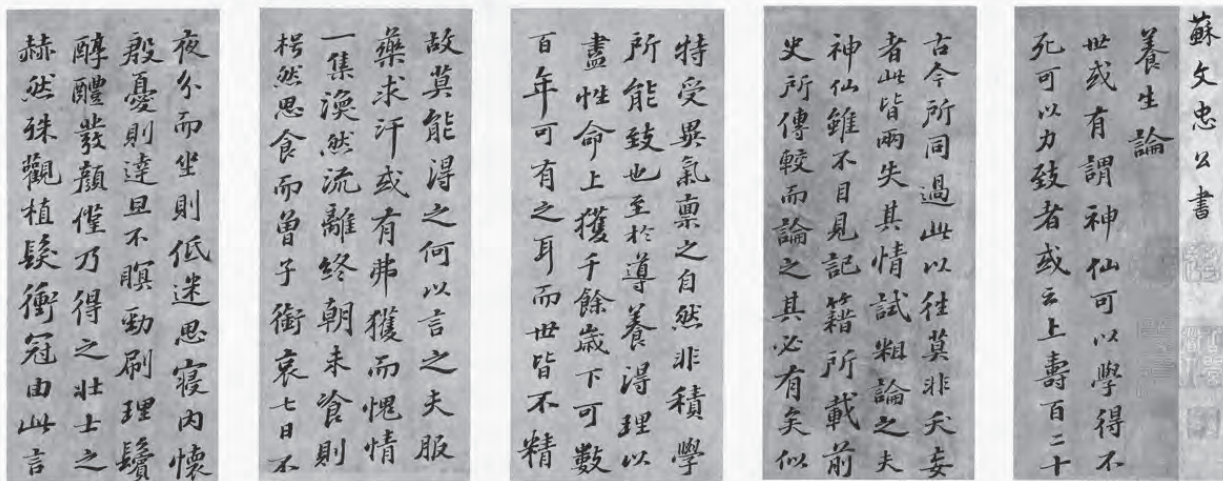 蘇文忠公書
養生論
世或有謂神仙可以學得不
死可以力致者或云上壽百二十
古今所同過此以往莫非夭妄
者此皆兩失其情試粗論之夫
神仙雖不目見記籍所載前
史所傳較而論之其必有矣似
特受異氣禀之自然非積學
所能致也至於導養得理以
盡性命上獲千餘歲下可數
百年可有之耳而世皆不精
故莫能得之何以言之夫服
藥求汗或有弗獲而愧情
一集渙然流離終朝未飡則
枵然思食而曾子銜哀七日不
夜分而坐則低迷思寢内懷
殷憂則達旦不瞑勁刷理鬢
醇醴發顔僅乃得之壯士之
赫然殊觀植髮衝冠由此言